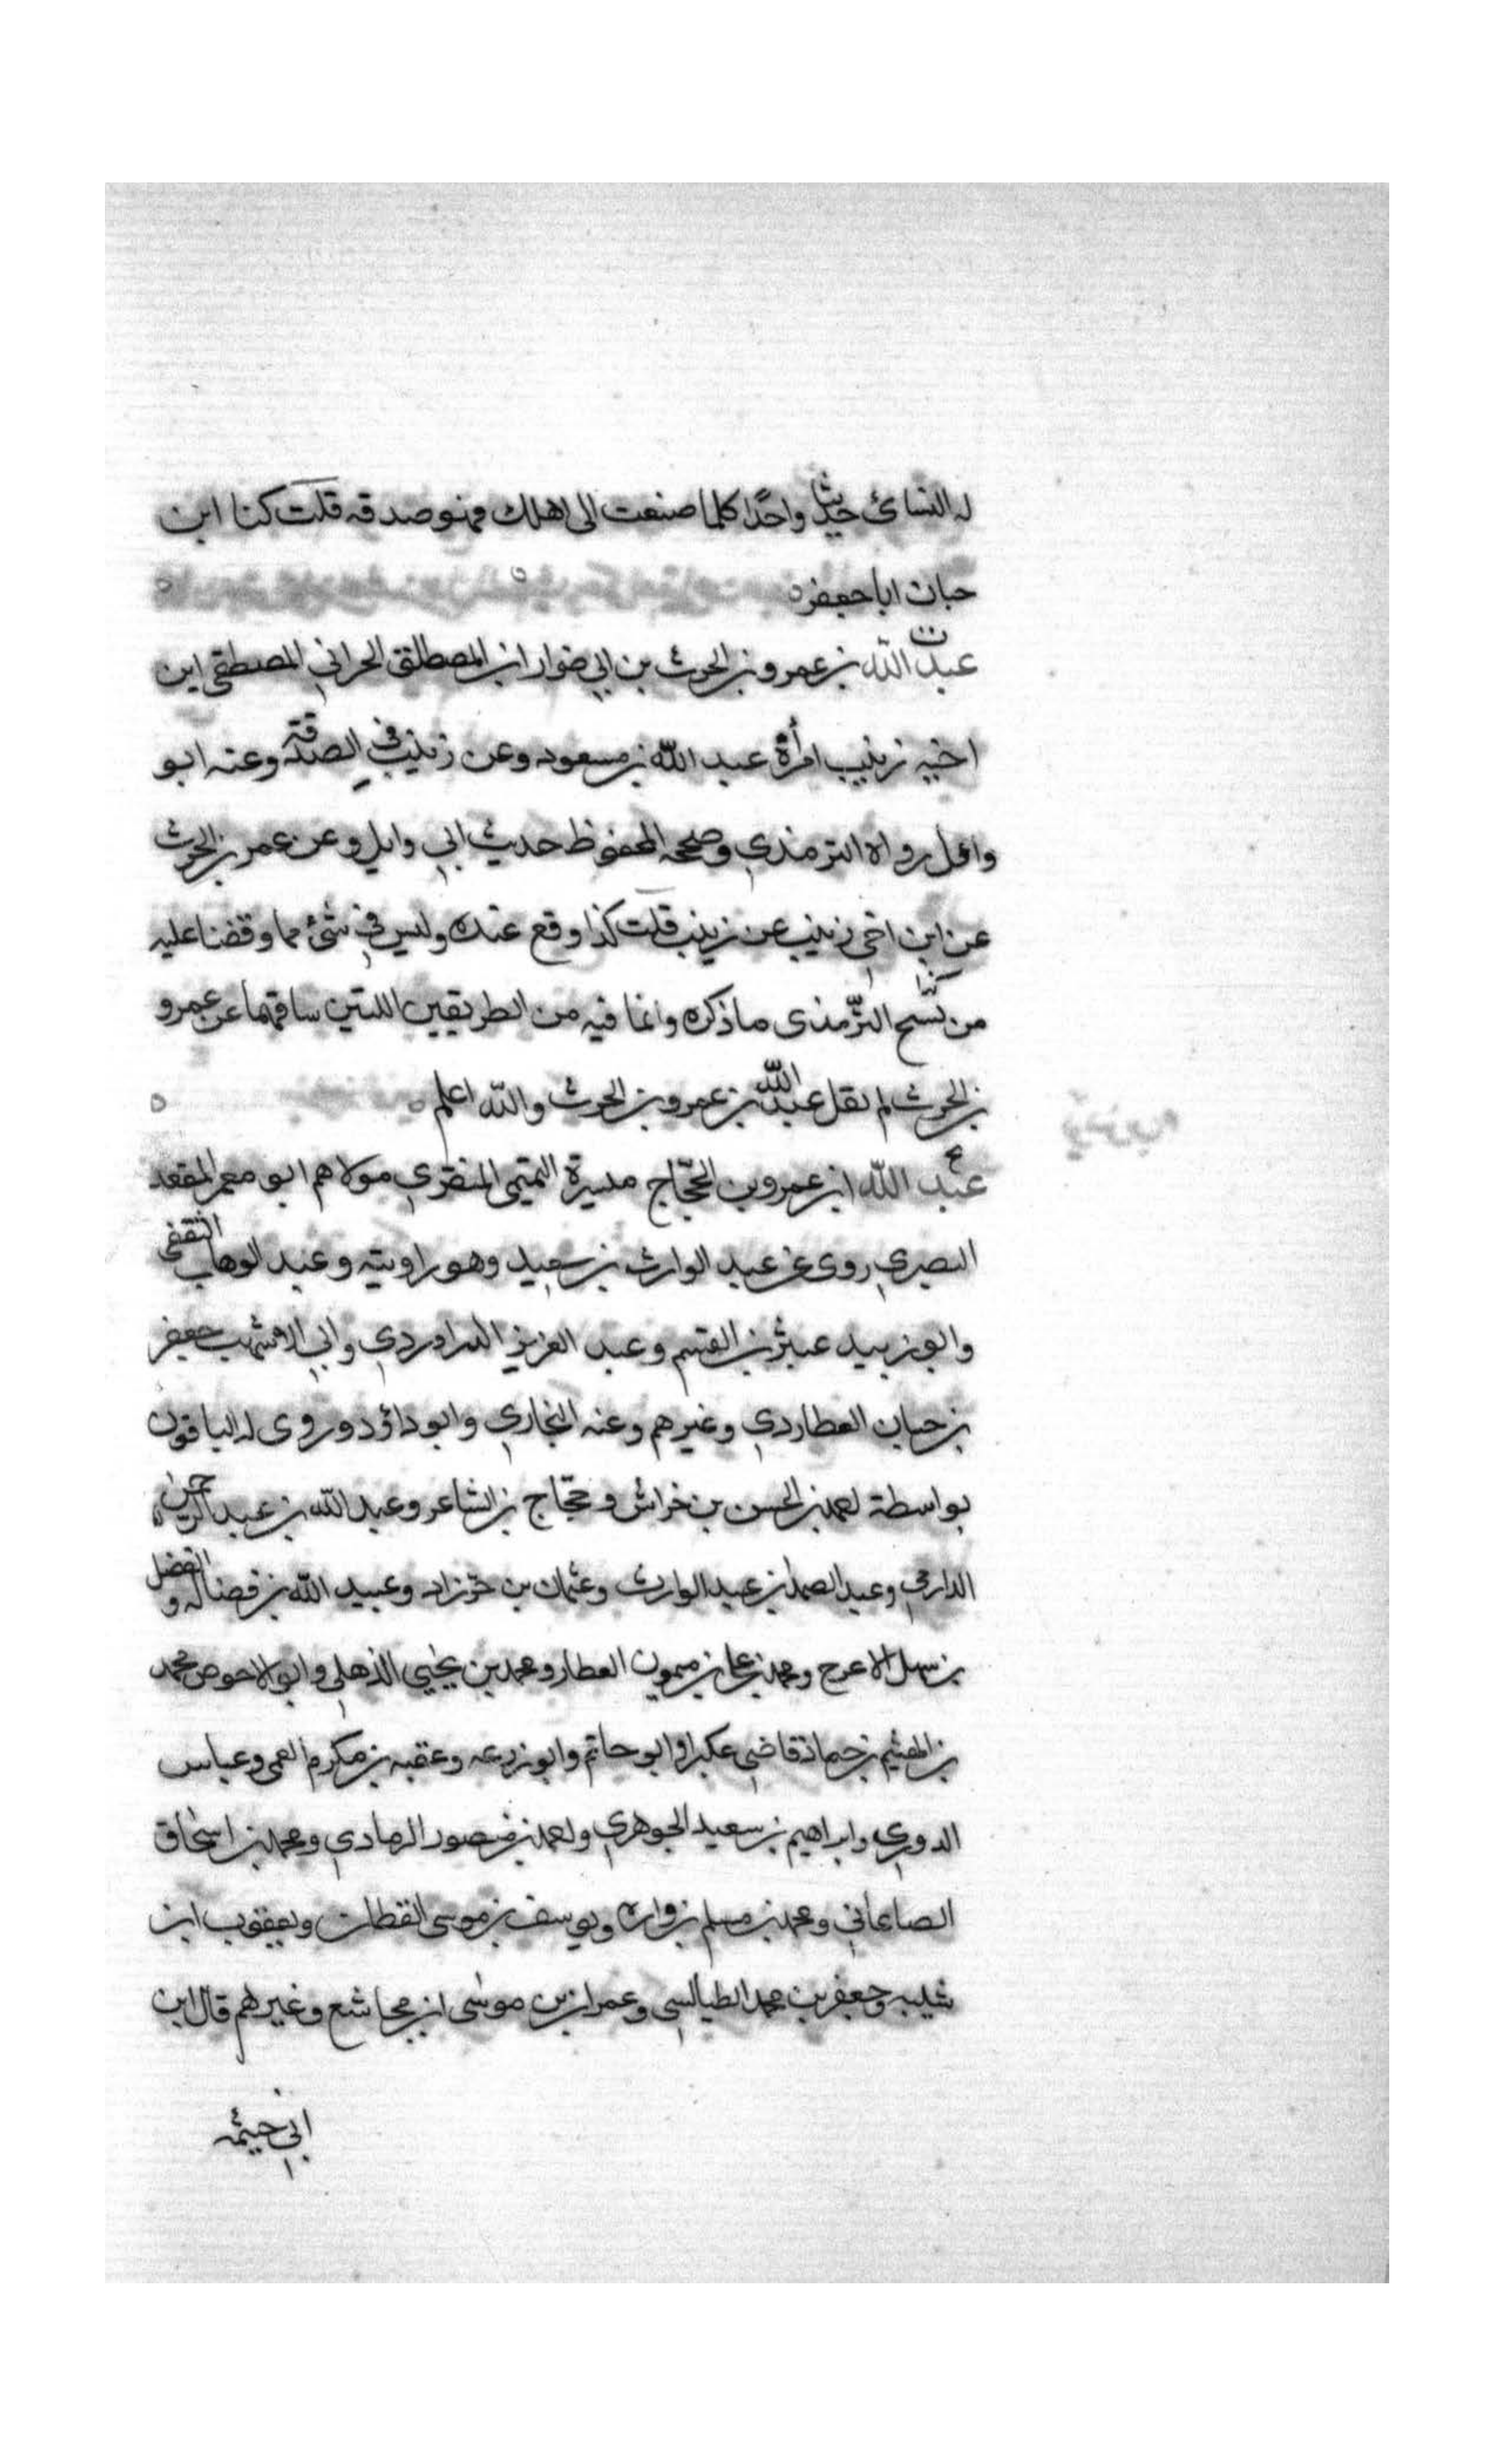 له النسائ حديثا واحدًا كلما صنعت الى اهلك فهو صدقه قلت كنا ابن
حبان ابا جعفر
عبد الله بن عمرو بن الحرث بن ابي ضرار ابن المصطلقي الحراني المصطقي ابن
اخيه زينب امرأة عبد الله بن مسعود وعن زينب في الصدقة وعنه ابو
وائل رواه الترمذي وصححه المحفوظ حديث ابي وايل وعن عمر بن الحرث
عن ابن اخي زينب عن زينب قلت كذا وقع عنده وليس في شئ مما وقفنا عليه
من نسخ الترمذى ما ذكره وانما فيه من الطريقين اللتين ساقهما عن عمرو
بن الحرث لم يقل عبد الله بن عمرو بن الحرث والله اعلم
عبد الله ابن عمرو بن الحجاج ميسرة التميمي المنقري مولاهم ابو معمر المقعد
البصري روى عن عبد الوارث بن سعيد وهو راويته وعبد الوهاب الثقفي
وابو زبيد عبثر بن القسم وعبد العزيز الدراوردي وابي الاشهب جعفر
بن حبان العطاردي وغيرهم وعنه البخاري وابو داؤد وروى له الباقون
بواسطة احمد بن الحسن بن خراش وحجاج بن الشاعر وعبد الله بن عبد الرحمن
الدارمي وعبد الصمد بن عبد الوارث وعثمان بن خرزاد وعبيد الله بن فضاله والفضل
بن سهل الاعرج ومحمد بن علي بن ميمون العطار ومحمد بن يحيي الذهلي وابو الاحوص محمد
بن الهيثم بن حماد قاضي عكبرا وابو حاتم وابو زرعه وعقبه بن مكرم العمي وعباس
الدوري وابراهيم بن سعيد الجوهري واحمد بن منصور الرمادي ومحمد بن اسحاق
الصاغاني ومحمد بن مسلم بن واره ويوسف بن موسى القطان ويعقوب ابن
شيبه وجعفر بن محمد الطيالسي وعمران بن موسى ابن مجاشع وغيرهم قال ابن
ابي خيثمه